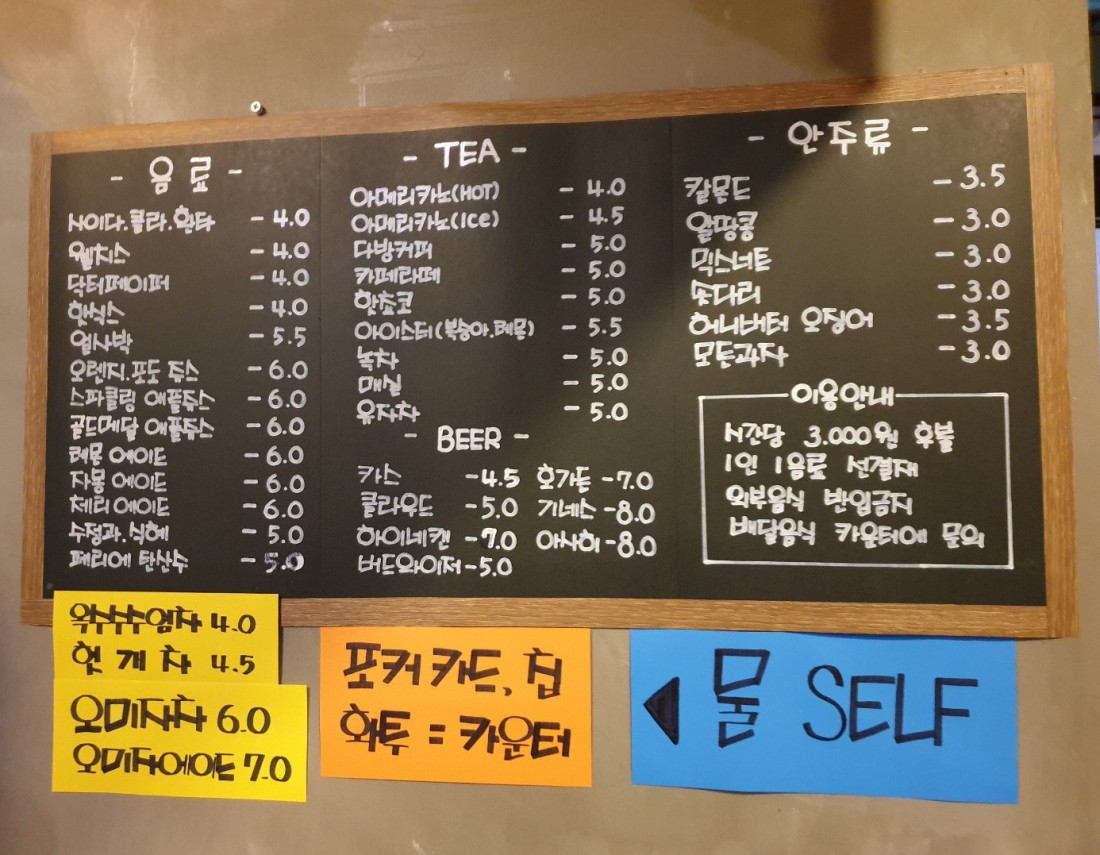 - 음료 -
사이다.콜라.환타 - 4.0
웰치스 - 4.0
닥터페이퍼 - 4.0
핫식스 - 4.0
얼사박 - 5.5
오렌지.포도 쥬스 - 6.0
스파클링 애플쥬스 - 6.0
골드메달 애플쥬스 - 6.0
레몬 에이드 - 6.0
자몽 에이드 - 6.0
체리 에이드 - 6.0
수정과.식혜 - 5.0
페리에 탄산수 - 5.0
- TEA -
아메리카노(HOT) - 4.0
아메리카노(Ice) - 4.5
다방커피 - 5.0
카페라떼 - 5.0
핫쵸코 - 5.0
아이스티(복숭아.레몬) - 5.5
녹차 - 5.0
매실 - 5.0
유자차 - 5.0
- BEER -
카스 -4.5 호가든 -7.0
클라우드 -5.0 기네스 -8.0
하이네켄 -7.0 아사히 -8.0
버드와이저 -5.0
- 안주류 -
칼몬드 - 3.5
알땅콩 - 3.0
믹스너트 - 3.0
숏다리 - 3.0
허니버터 오징어 - 3.5
모든과자 - 3.0
이용안내
시간당 3.000원 후불
1인 1음료 선결재
외부음식 반입금지
배달음식 카운터에 문의
옥수수수염차 4.0
헛개차 4.5
오미자차 6.0
오미자에이드 7.0
포커카드, 칩
화투 = 카운터
◀ 물 SELF